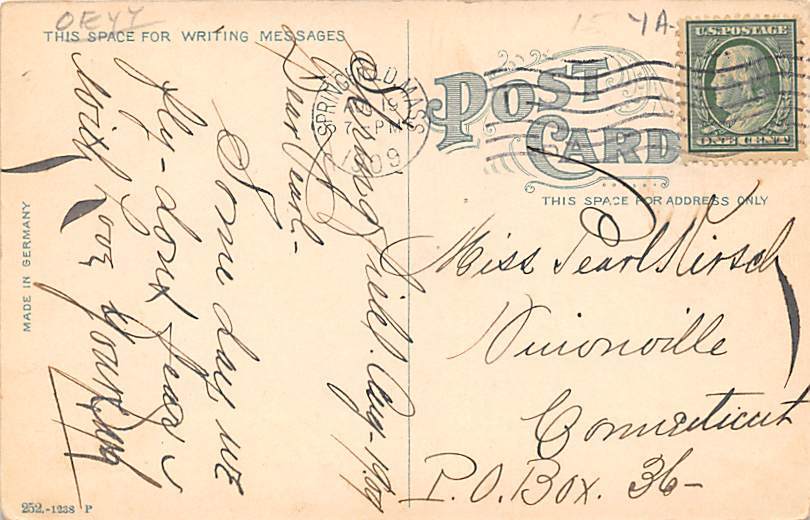 OEYY
15 YA-
THIS SPACE FOR WRITING MESSAGES
POST CARD
U.S. POSTAGE
ONE CENT
SPRINGFIELD, MASS.
19
7 PM
1909
THIS SPACE FOR ADDRESS ONLY
Springfield. Aug-19.09
Dear Pearl-
Some day we
fly- dont fear
With Love Your
Miss Pearl Kirsch
Unionville
Connecticut
P.O. Box. 36-
MADE IN GERMANY
252.-1238 P